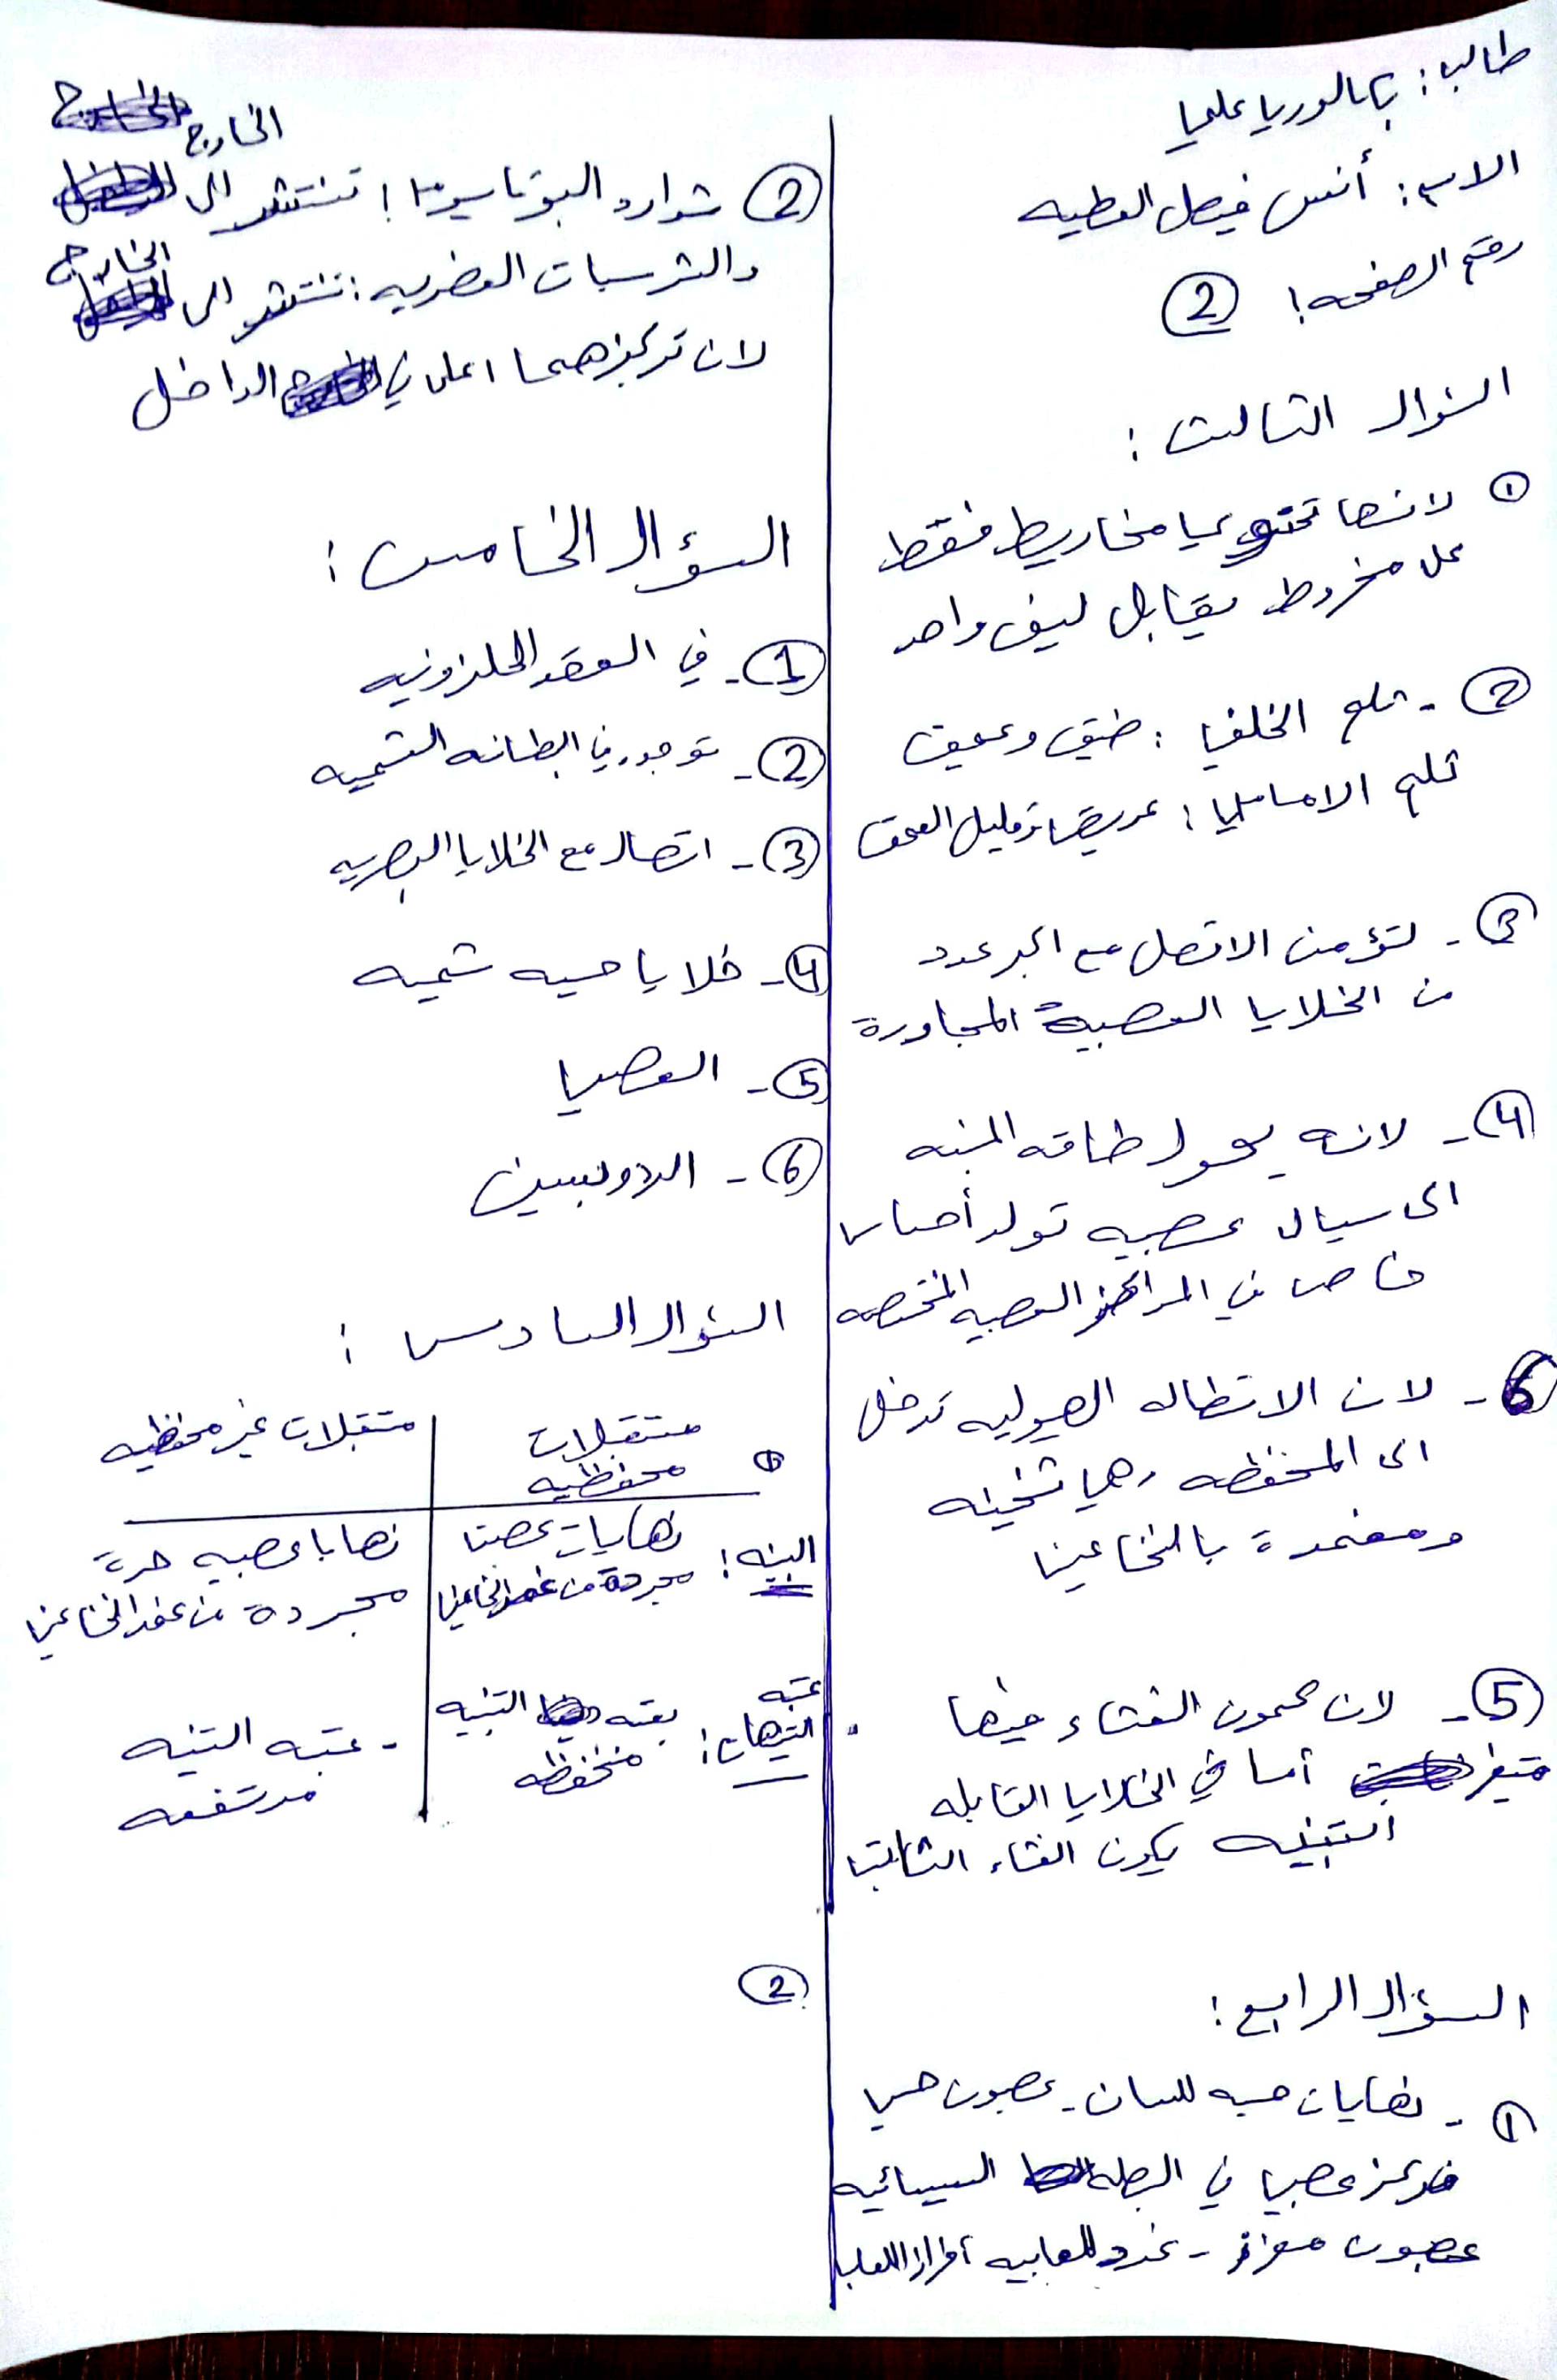 طالب: بكالوريا علمي
الاسم: أنس فيصل العطيه
رقم الصفحه: 2
السؤال الثالث:
① لانها تحتوي على مخاريط فقط
كل مخروط يقابل ليف واحد
② - ثلم الخلفي: ضيق وعميق
ثلم الامامي: عريض وقليل العمق
③ - لتؤمن الاتصل مع اكبر عدد
من الخلايا العصبية المجاورة
④ - لانه يحول طاقه المنبه
الى سيال عصبيه تولد أحساس
خاص في المراكز العصبيه المختصه
6 - لان الاستطاله الهيوليه تدخل
الى المحفظه وهي ثخينه
ومغمدة بالنخاعين
⑤ - لان كمون الغشاء فيها
متغير أما في الخلايا القابله
التنبيه يكون الغشاء الثابت
السؤال الرابع:
① - نهايات حسيه للسان - عصبون حسي
مركز عصبي في البصله السيسائيه
عصبون مفرز - غدد اللعابيه افراز اللعاب
الخارج
② شوارد البوتاسيوم: تنتشر الى
الخارج
والشرسبات العضويه: تنتشر الى
لان تركيزهما اعلى في الداخل
السؤال الخامس:
① - في العقد الحلزونيه
② - توجد في البطانه الشميه
③ - اتصال مع الخلايا البصريه
④ - خلايا حسيه شميه
⑤ - العصي
⑥ - الردوبسين
السؤال السادس:
① مستقبلات محفظيه | مستقبلات غير محفظيه
البنيه: نهايات عصبيا | نهايا عصبيه حرة
مجردة من غمد النخاعين | مجردة من غمد النخاعين
عتبه
التنبيه: عتبه التنبيه | - عتبه التنبيه
منخفظه | مرتفعه
②